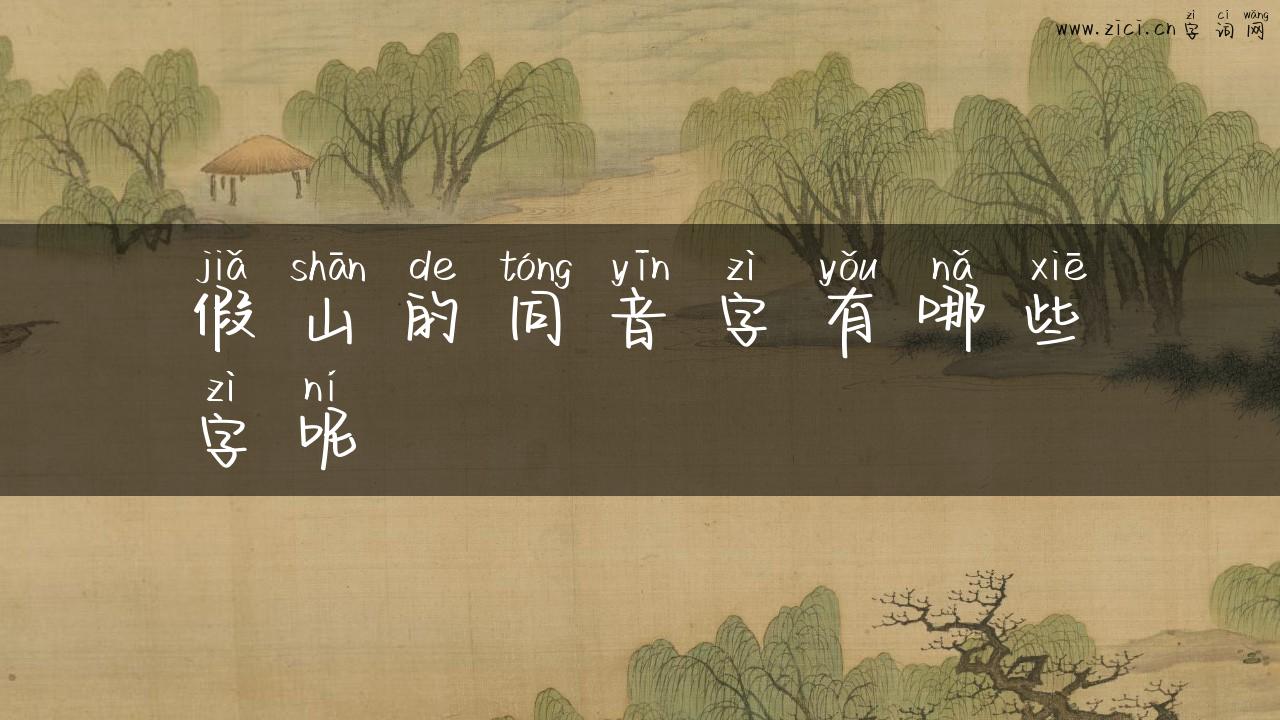 zì cí wǎng
www.zici.cn 字 词 网
jiǎ shān de tóng yīn zì yǒu nǎ xiē
假 山 的 同 音 字 有 哪 些
zì ní
字 呢